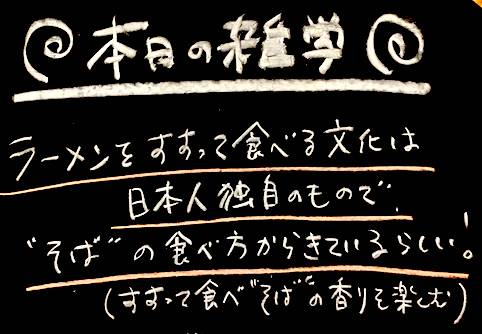 本日の雑学
ラーメンをすすって食べる文化は
日本人独自のもので、
"そば"の食べ方からきているらしい!
(すすって食べ"そば"の香りを楽しむ)